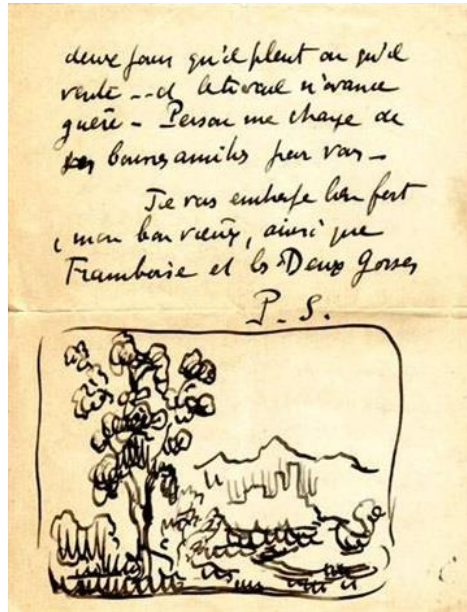 deux jours qu'il pleut ou qu'il
vente -- et le travail n'avance
guère - Person me charge de
ses bonnes amitiés pour vous -
Je vous embrasse bien fort
mon bon vieux, ainsi que
Framboise et les Deux Gosses
P. S.